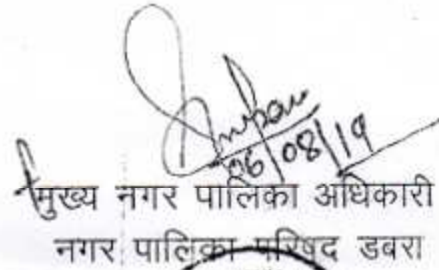 06/08/19
मुख्य नगर पालिका अधिकारी
नगर पालिका परिषद डबरा